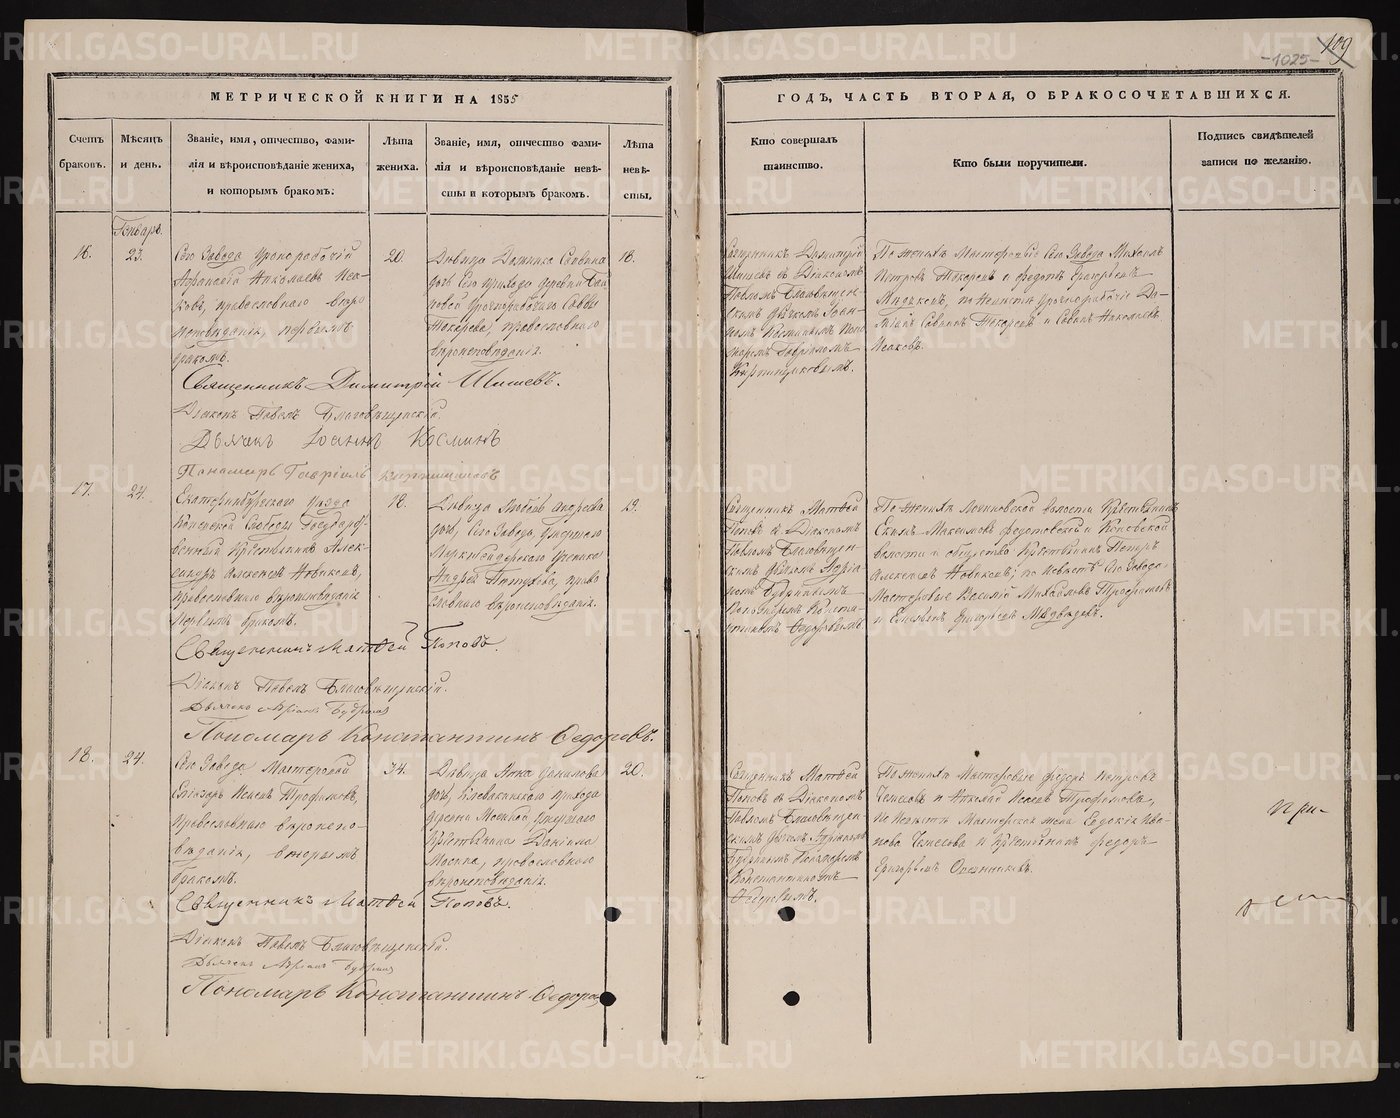 109
-1025-
МЕТРИЧЕСКОЙ КНИГИ НА 1855
ГОДЪ, ЧАСТЬ ВТОРАЯ, О БРАКОСОЧЕТАВШИХСЯ.
Счетъ браковъ.
Мѣсяцъ и день.
Званіе, имя, отчество, фами-
лія и вѣроисповѣданіе жениха,
и которымъ бракомъ.
Лѣта жениха.
Званіе, имя, отчество фами-
лія и вѣроисповѣданіе невѣ-
сты и которымъ бракомъ.
Лѣта невѣ-
сты.
Кто совершалъ
таинство.
Кто были поручители.
Подпись свидѣтелей
записи по желанію.
Генварь.
16.
23.
Сего Завода Урочнорабочій
Афанасій Николаевъ Иса-
ковъ, православнаго вѣро
исповѣданія, первымъ
бракомъ.
20.
Дѣвица Домника Саввина
дочь Сего прихода деревни
Урочнорабочаго Саввы
Токарева, православнаго
вѣроисповѣданія.
18.
Священникъ Димитрій
Шишевъ съ Діакономъ
Павломъ Благовѣщен-
скимъ дьячкомъ Іоан-
номъ Косминымъ Поно-
маремъ Гавріиломъ
По женихѣ Мастеровые Сего Завода Михаилъ
Петровъ Токаревъ и Федотъ Григорьевъ
по Невѣстѣ Урочнорабочіе Да-
Саввинъ Токаревъ и Савинъ Николаевъ
Исаковъ.
Священникъ Димитрій Шишевъ.
Діаконъ Павелъ Благовѣщенскій.
Дьячекъ Іоаннъ Косминъ
Пономарь Гавріилъ
17.
24.
Екатеринбургскаго уѣзда
Слободы Государст-
венный Крестьянинъ Алек-
сандръ Алексѣевъ Новиковъ,
православнаго вѣроисповѣданія
первымъ бракомъ.
18.
Дѣвица Любовь Андреева
дочь, Сего Завода, умершаго
Ученика
Андрея Пѣтухова, право
славнаго вѣроисповѣданія.
19.
Священникъ Матѳей
Поповъ съ Діакономъ
Павломъ Благовѣщен-
скимъ дьячкомъ Адріа-
номъ Будринымъ
Пономаремъ Конста-
нтиномъ Ѳедоровымъ
По женихѣ Логиновской волости Крестьянинъ
Максимовъ Федотовской и
волости и общества Крестьянинъ Петръ
Алексѣевъ Новиковъ; по Невѣстѣ Сего Завода
Мастеровые Василій Михайловъ Трофимовъ
и Григорьевъ Медвѣдевъ.
Священникъ Матѳей Поповъ.
Діаконъ Павелъ Благовѣщенскій.
Дьячекъ Адріанъ Будринъ
Пономарь Константинъ Ѳедоровъ.
18.
24.
Сего Завода Мастеровой
Елеазаръ Исаевъ Трофимовъ,
православнаго вѣроиспо-
вѣданія, вторымъ
бракомъ.
34.
Дѣвица Анна Данилова
дочь, Клевакинскаго прихода
деревни Мосиной умершаго
Крестьянина Даніила
Мосина, православнаго
вѣроисповѣданія.
20.
Священникъ Матѳей
Поповъ съ Діакономъ
Павломъ Благовѣщен-
скимъ дьячкомъ Адріаномъ
Будринымъ Пономаремъ
Константиномъ
Ѳедоровымъ.
По женихѣ Мастеровые Федоръ Петровъ
Чемесовъ и Николай Исаевъ Трофимовъ,
по Невѣстѣ Мастерская жена Евдокія Ива-
нова Чемесова и Крестьянинъ Федоръ
Григорьевъ
При-
Священникъ Матѳей Поповъ.
Діаконъ Павелъ Благовѣщенскій.
Дьячекъ Адріанъ Будринъ
Пономарь Константинъ Ѳедоровъ
METRIKI.GASO-URAL.RU